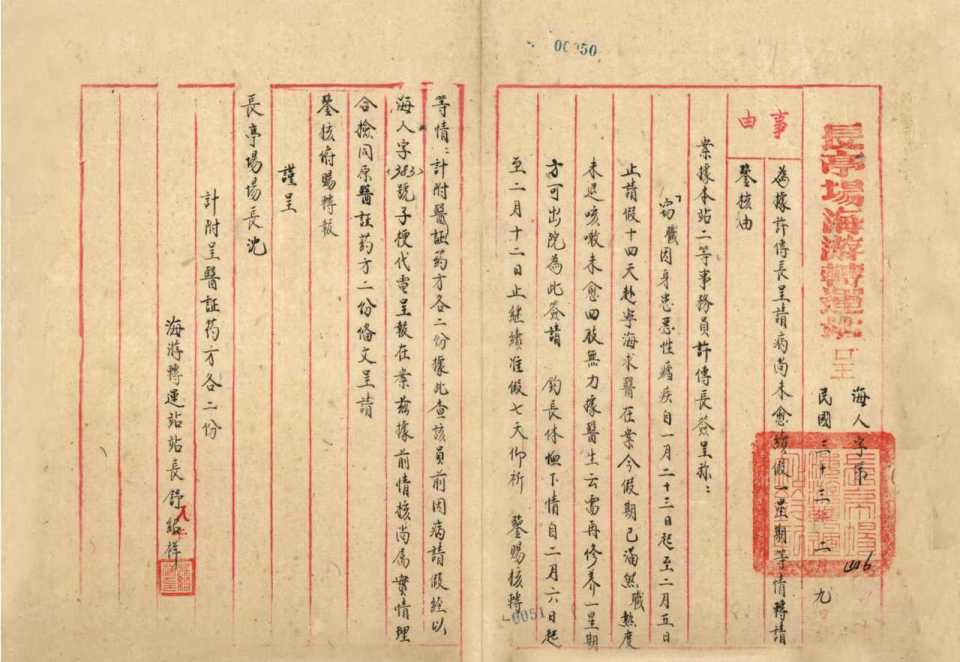 00050
長亭場海游轉運站呈
海人字第
民國三十三年二
九
事由
為據許傳長呈請病尚未愈續假一星期等情轉請
鑒核由
案據本站二等事務員許傳長簽呈称:
「窃職因身患惡性瘧疾自一月二十三日起至二月五日
止請假十四天赴寧海求醫在案今假期已滿然職熱度
未退咳嗽未愈四肢無力據醫生云需再修养一星期
方可出院為此簽請 鈞長体恤下情自二月六日起
至二月十二日止継續准假七天仰祈 鑒賜核轉
0051
等情:計附醫証葯方各二份據此查該員前因病請假經以
海人字(383)號子梗代電呈報在案茲據前情核尚属實情理
合撿同原醫証葯方二份備文呈請
鑒核俯賜轉報
謹呈
長亭場場長沈
計附呈醫証葯方各二份
海游轉運站站長舒紹祥